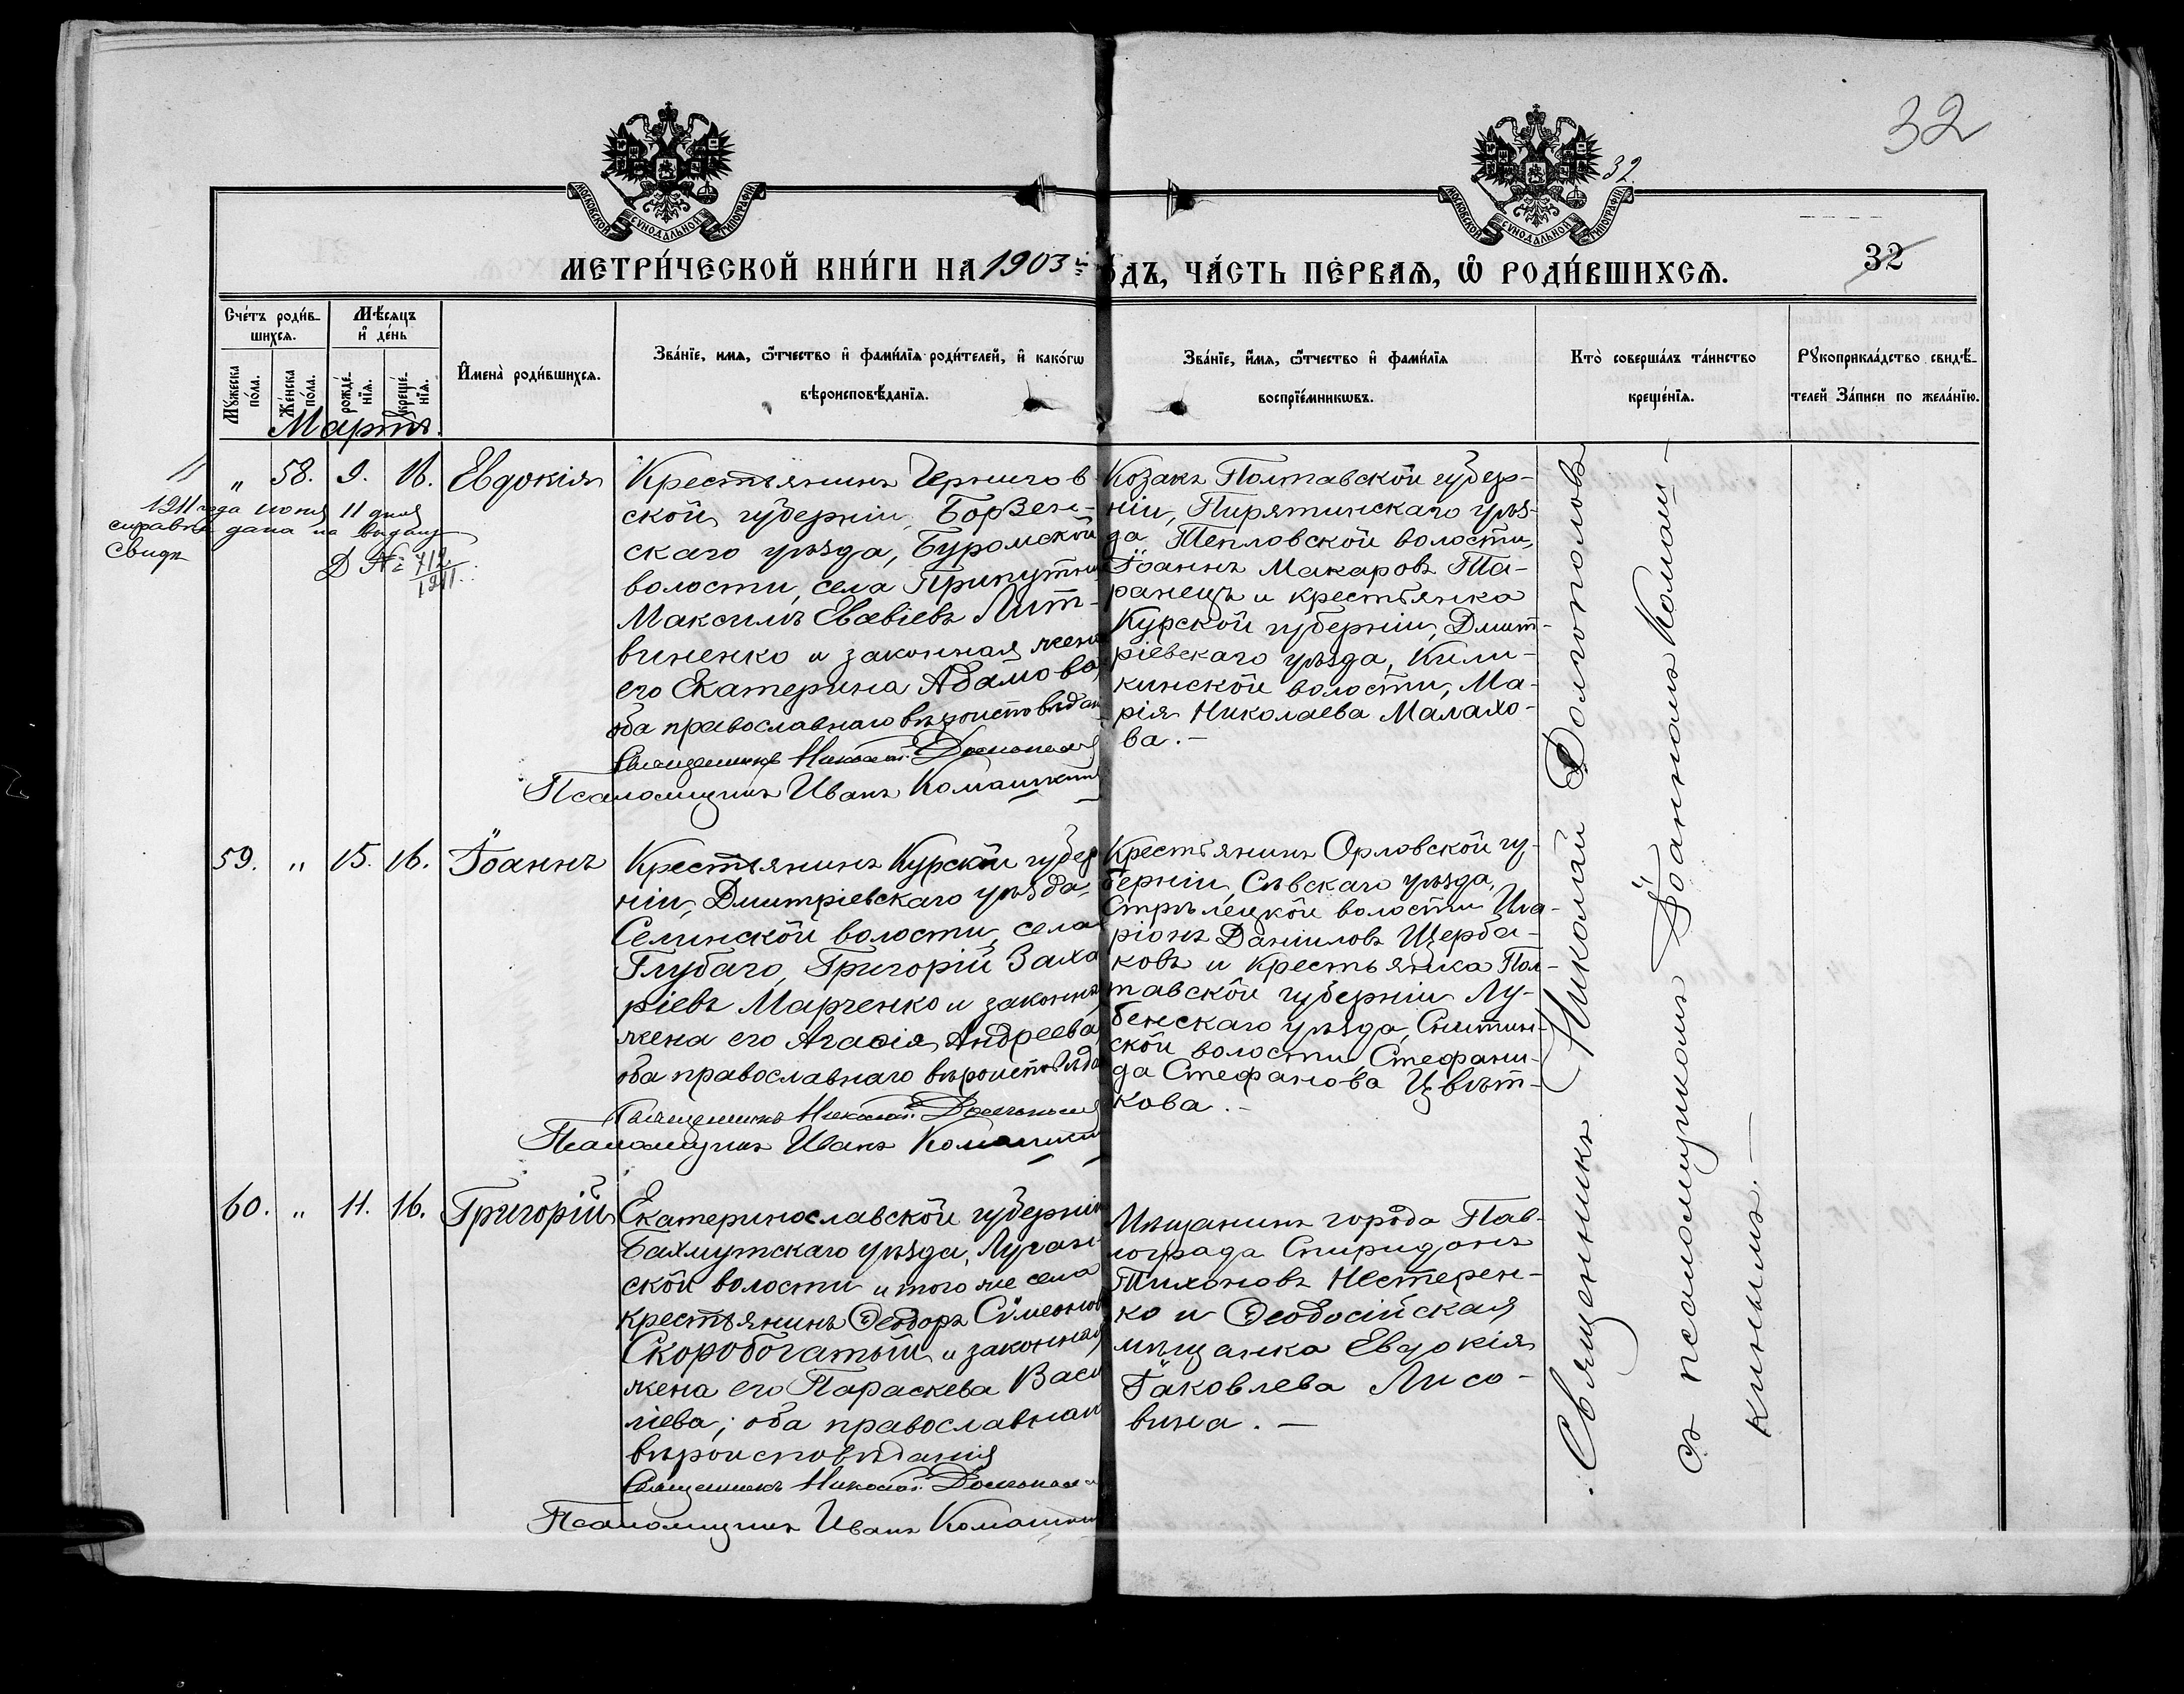 32
32.
МОСКОВСКОЙ СѴНОДАЛЬНОЙ ТИПОГРАФІИ
МОСКОВСКОЙ СѴНОДАЛЬНОЙ ТИПОГРАФІИ
МЕТРИ́ЧЕСКОЙ КНИ́ГИ НА 1903й ОДЪ, ЧА́СТЬ ПЕ́РВАѦ, Ѡ РОДИ́ВШИХСѦ.
32
Сче́тъ роди́в-
шихсѧ.
Мѣ́сѧцъ
и҆ де́нь
Му́жеска
по́ла.
Же́нска
по́ла.
рожде́-
нїѧ.
креще́-
нїѧ.
И҆мена̀ роди́вшихсѧ.
Зва́нїе, имѧ, ѻ҆́тчество и҆ фами́лїѧ роди́телей, и҆ како́гѡ
вѣроисповѣ́данїѧ.
Зва́нїе, и҆́мѧ, ѻ҆́тчество и҆ фами́лїѧ
воспрїе́мникѡвъ.
Кто̀ соверша́лъ та́инство
креще́нїѧ.
Рꙋкоприкла́дство свидѣ́-
телей За́писи по жела́нїю.
Мартъ.
„ 58. 9. 16. Евдокія
1911 года іюня 11 дня
справка дана на выдачу
Свид
Д № 712
1911.
Крестьянинъ Чернигов
ской губерніи, Борзен-
скаго уѣзда, Буромской
волости, села Припутни
Максимъ Евѳіевъ Лит-
виненко и законная жена
его Екатерина Адамова,
оба православнаго вѣроисповѣдан
Священникъ Николай Долгополов
Псаломщикъ Иванъ Комашкин
Козакъ Полтавской губер-
ніи, Пирятинскаго уѣз-
да Тепловской волости,
Іоаннъ Макаровъ Та-
ранецъ и крестьянка
Курской губерніи, Дмит-
ріевскаго уѣзда, Кили-
кинской волости, Ма-
рія Николаева Малахо-
ва.-
59. „ 15. 16. Іоаннъ
Крестьянинъ Курской губер
ніи, Дмитріевскаго уѣзда,
Селинской волости, села
Глубаго, Григорій Заха
ріевъ Марченко и законная
жена его Агаѳія Андреева,
оба православнаго вѣроисповѣда
Священникъ Николай Долгополов
Псаломщикъ Иванъ Комашкин
Крестьянинъ Орловской гу-
берніи, Сѣвскаго уѣзда,
Стрѣлецкой волости Ила-
ріонъ Даніиловъ Щерба-
ковъ и крестьянка Пол-
тавской губерніи Лу-
бенскаго уѣзда, Снитин-
ской волости, Стефани-
да Стефанова Цвѣт-
кова.-
60. „ 11. 16. Григорій
Екатеринославской губерніи
Бахмутскаго уѣзда, Луган
ской волости и того же села
крестьянинъ Ѳеодоръ Сѵмеонов
Скоробогатый и законная
жена его Параскева Васи
ліева; оба православнаг
вѣроисповѣданія
Священникъ Николай Долгополов
Псаломщикъ Иванъ Комашкин
Мѣщанинъ города Пав-
лограда Спиридонъ
Тихоновъ Нестерен-
ко и Ѳеодосійская
мѣщанка Евдокія
Іаковлева Лисо-
вина.-
Священникъ Николай Долгополовъ
съ псаломщикомъ Іоанномъ Комаш-
кинымъ.-